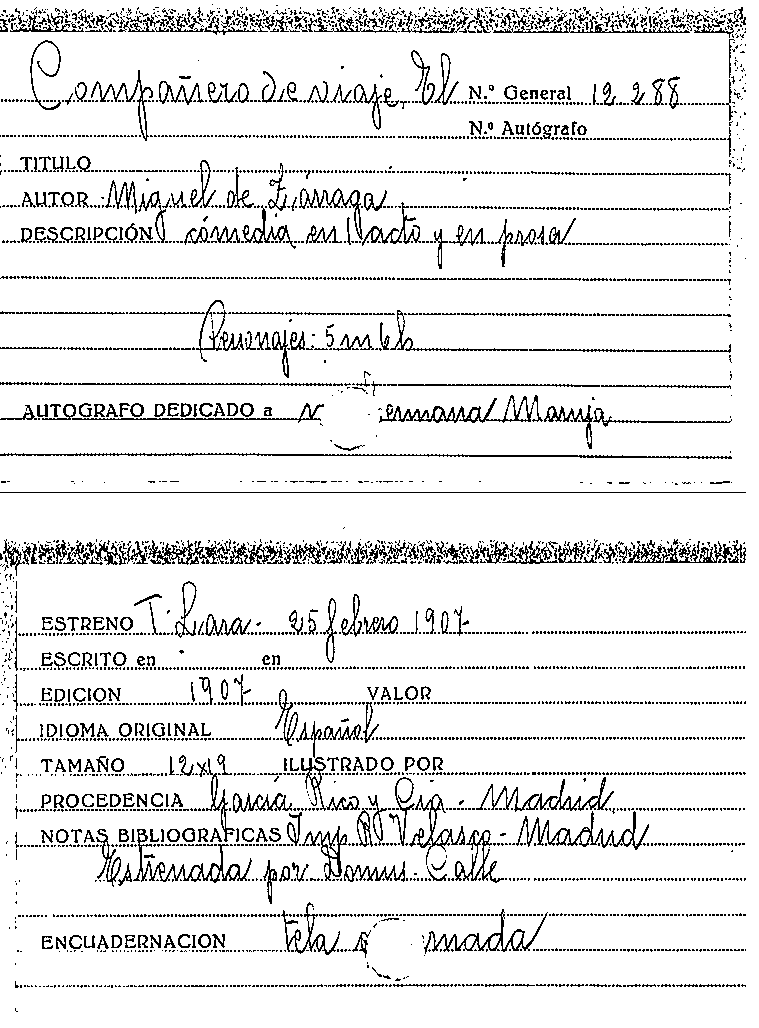 Compañero de viaje, El N.º General 12 288
N.º Autógrafo
TITULO
AUTOR Miguel de Zárraga
DESCRIPCIÓN cómedia en 1 acto y en prosa
Personajes: 5 m 6 h
AUTOGRAFO DEDICADO a ermana Maruja
ESTRENO T. Lara - 25 febrero 1907
ESCRITO en en
EDICION 1907 VALOR
IDIOMA ORIGINAL Español
TAMAÑO 12x19 ILUSTRADO POR
PROCEDENCIA García Rico y Cia - Madrid
NOTAS BIBLIOGRAFICAS Imp. R Velasco - Madrid
Estrenada por Domus. Calle
ENCUADERNACION tela mada